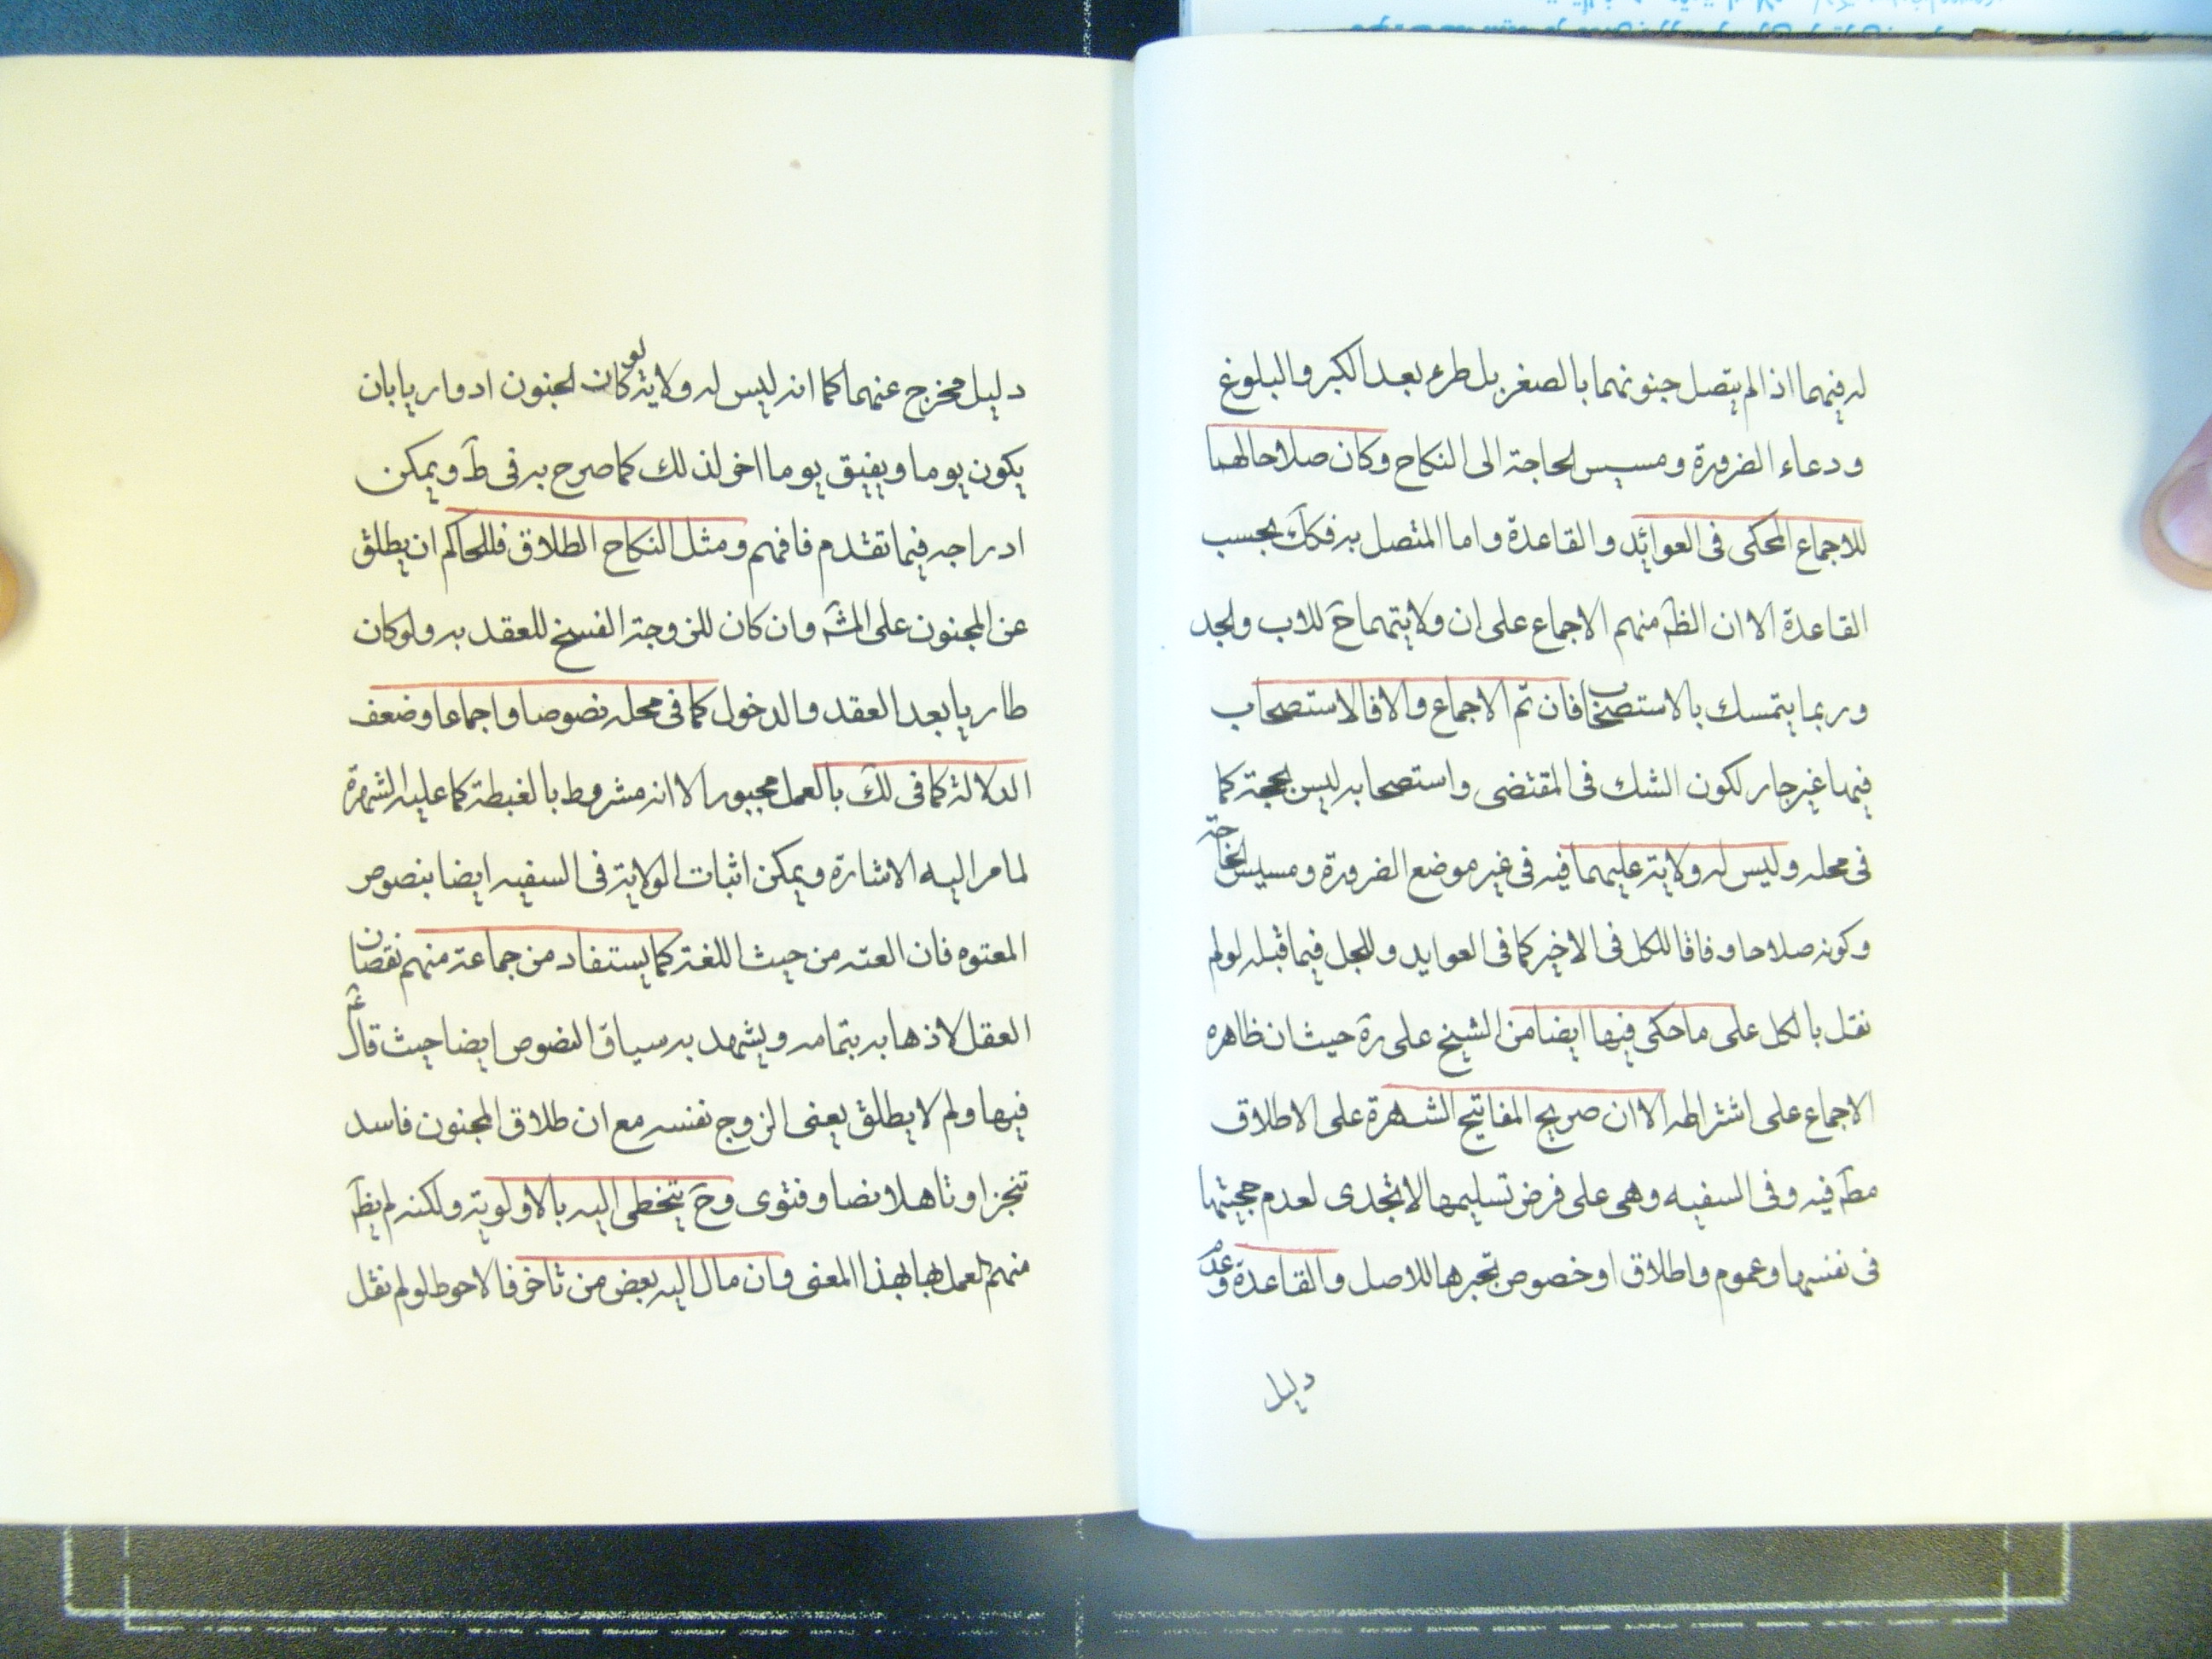 له فيهما اذا لم يتصل جنونهما بالصغر بل طرء بعد الكبر والبلوغ
ودعاء الضرورة ومسيس الحاجة الى النكاح وكان صلاحا لهما
للاجماع المحكى فى العوائد والقاعدة واما المتصل به فكك بحسب
القاعدة الا ان الظ منهم الاجماع على ان ولايتهما ح للاب والجد
وربما يتمسك بالاستصحاب فان تم الاجماع والا فالاستصحاب
فيها غير جار لكون الشك فى المقتضى واستصحابه ليس بحجة كما
فى محله وليس له ولاية عليهما فيه فى غير موضع الضرورة ومسيس الحاجة
وكونه صلاحا وفاقا للكل فى الاخير كما فى العوايد وللجل فيما قبله لو لم
نقل بالكل على ما حكى فيها ايضا من الشيخ على ره حيث ان ظاهره
الاجماع على اشتراطه الا ان صريح المفاتيح الشهرة على الاطلاق
مط فيه وفى السفيه وهى على فرض تسليمها لا تجدى لعدم حجيتها
فى نفسها وعموم واطلاق او خصوص تجبرها للاصل والقاعدة وعدم
دليل
دليل مخرج عنهما كما انه ليس له ولاية لو كان الجنون ادواريا بان
يكون يوما ويفيق يوما اخر لذلك كما صرح به فى ط ويمكن
ادراجه فيما تقدم فافهم ومثل النكاح الطلاق فللحاكم ان يطلق
عن المجنون على المش وان كان للزوجة الفسخ للعقد به ولو كان
طاريا بعد العقد والدخول كما فى محله نصوصا واجماعا وضعف
الدلالة كما فى لك بالعمل مجبور الا انه مشروط بالغبطة كما عليه الشهرة
لما مر اليه الاشارة ويمكن اثبات الولاية فى السفيه ايضا بنصوص
المعتوه فان العته من حيث اللغة كما يستفاد من جماعة منهم نقصان
العقل لا ذهابه بتمامه ويشهد به سياق النصوص ايضا حيث قال ع
فيها ولم لا يطلق يعنى الزوج نفسه مع ان طلاق المجنون فاسد
تنجزا وتاهلا نصا وفتوى وح يتخطى اليه بالاولوية ولكنه لم يظ
منهم العمل بها بهذا المعنى وان مال اليه بعض من تاخر فالاحوط لو لم نقل